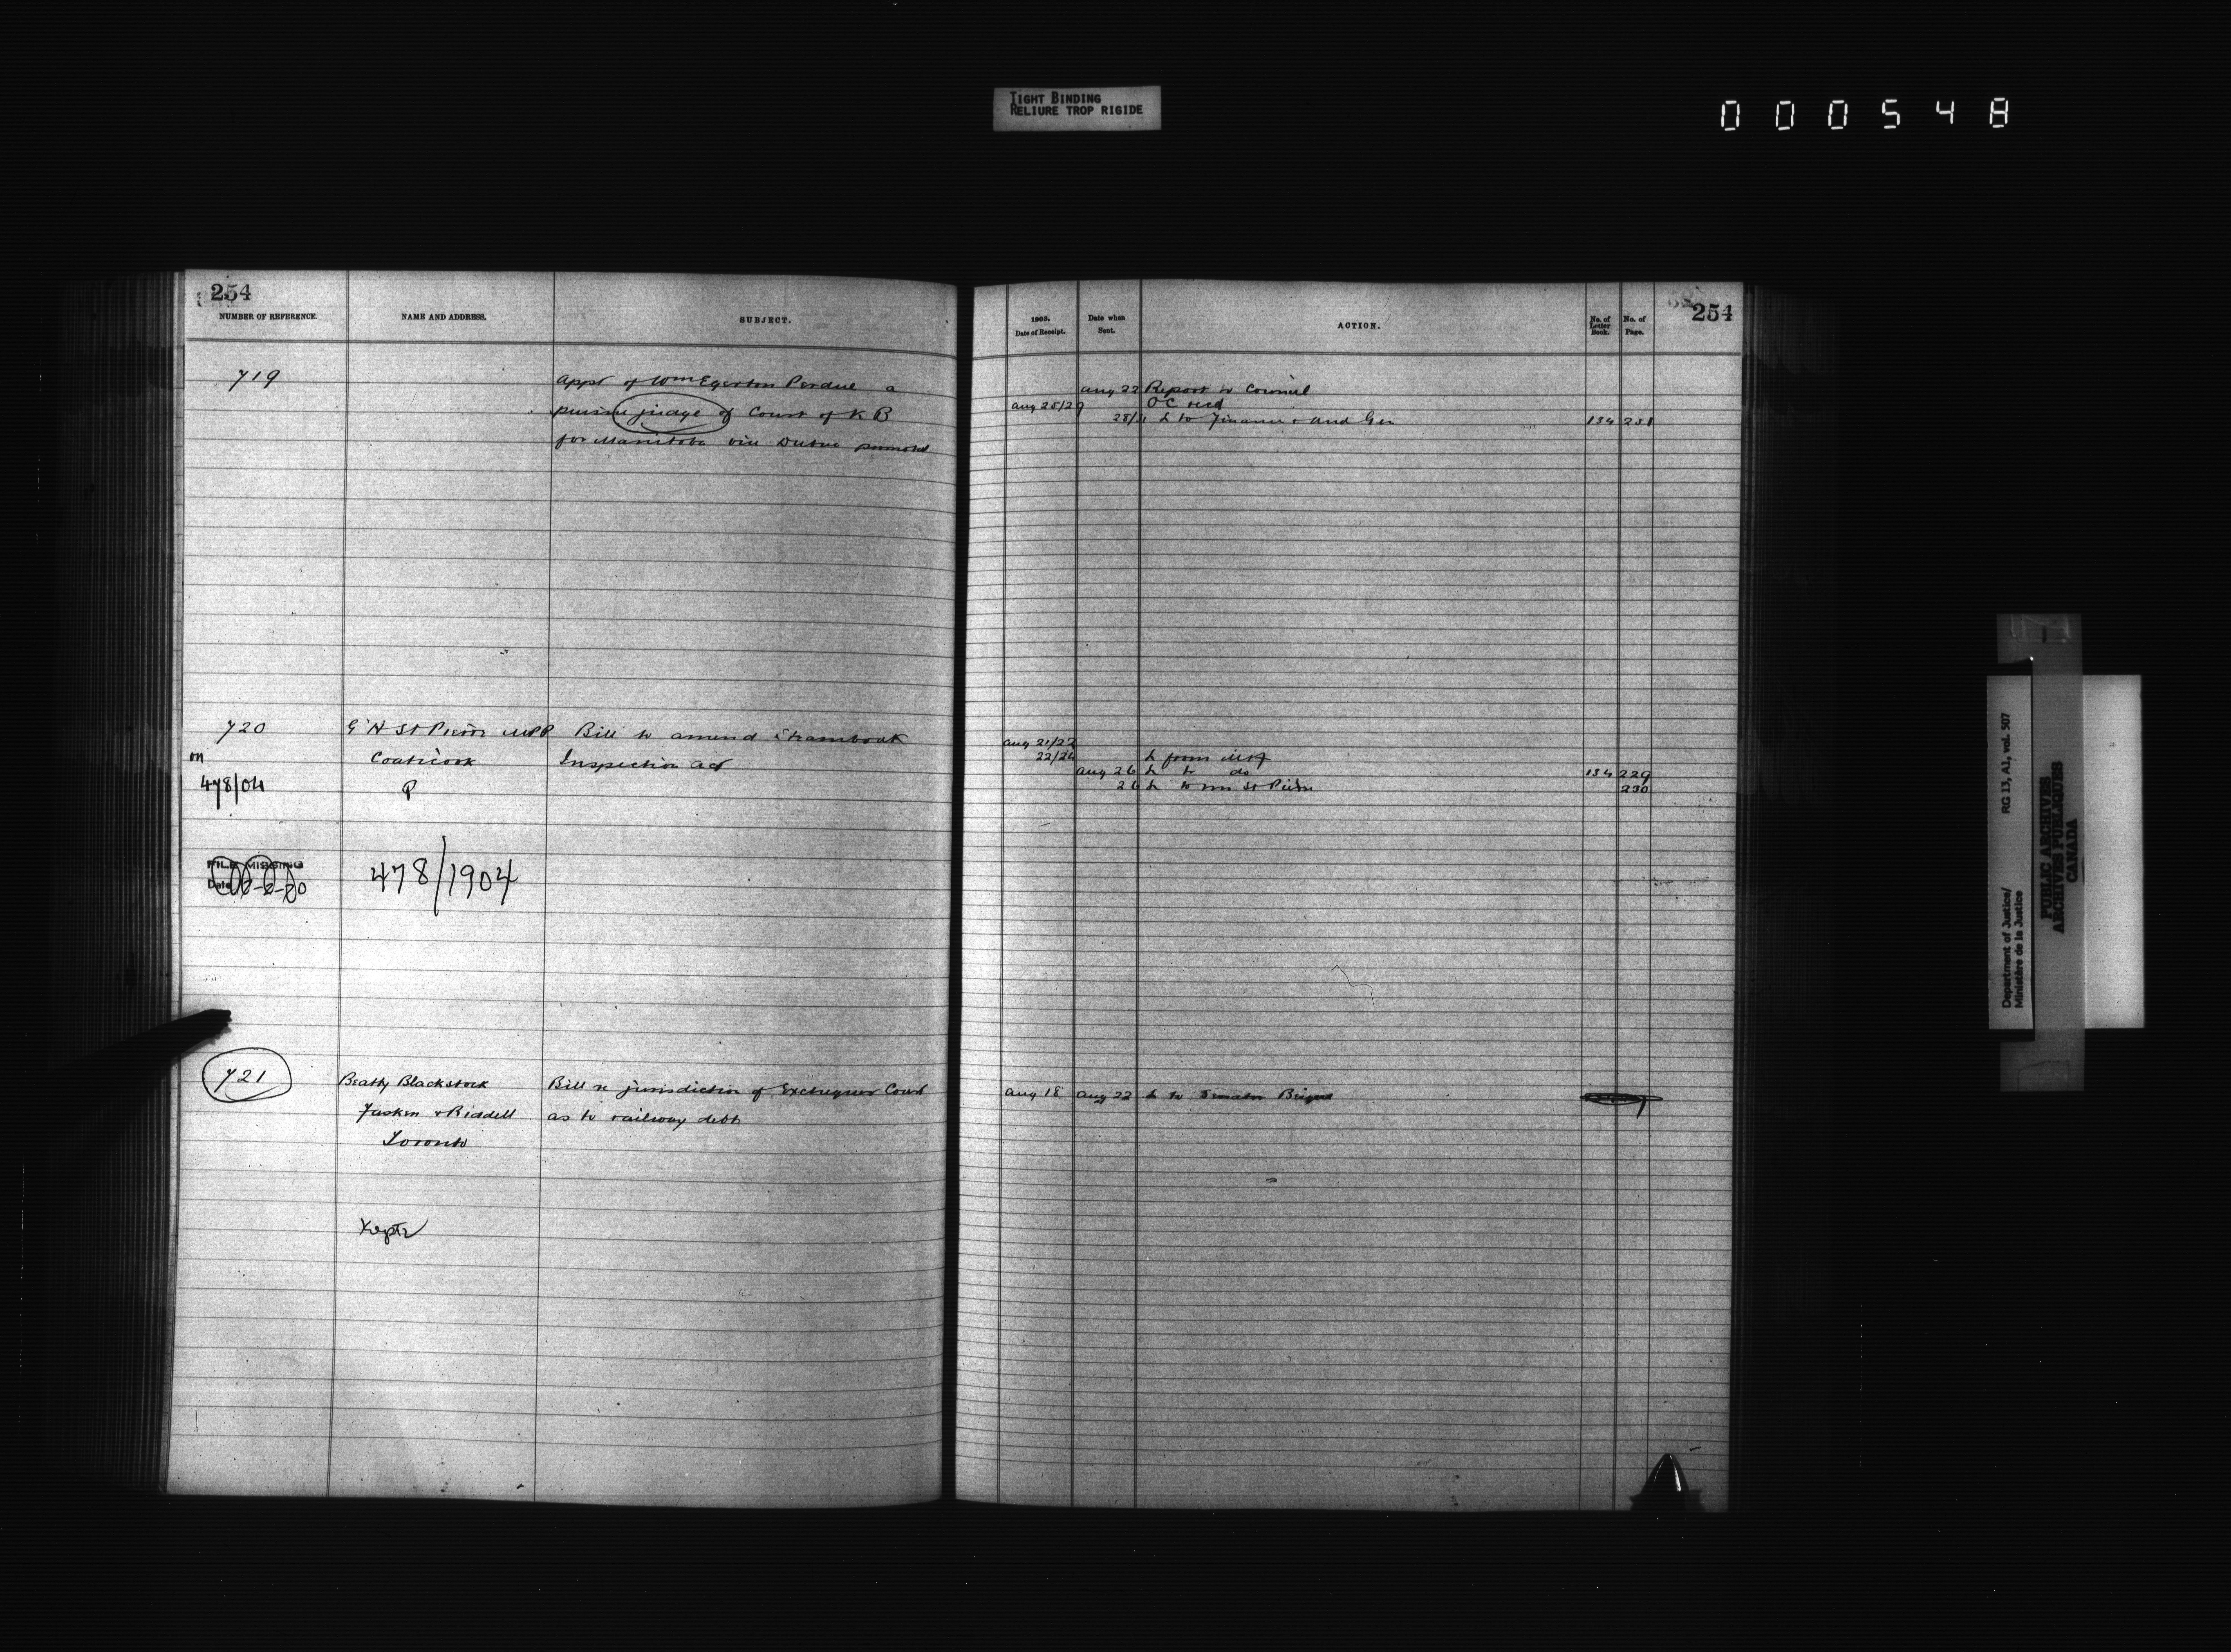 TIGHT BINDING
RELIURE TROP RIGIDE
000548
254
NUMBER OF REFERENCE.
NAME AND ADDRESS.
SUBJECT.
719
Appt of Wm Egerton Perdue a
puisne judge of Court of K B
for Manitoba vice Dubuc promoted
720
St Pierre MPP
Bill to amend Steamboat
on
Coaticook
Inspection Act
478/04
P
FILE MISSING
Date
478/1904
721
Beatty Blackstock
Bill re jurisdiction of Exchequer Court
Fasken & Riddell
as to railway debt
Toronto
254
1903.
Date of Receipt.
Date when
Sent.
ACTION.
No. of
Letter
Book.
No. of
Page.
Aug 22 Report to Council
OC recd
L to Finance & Aud Gen 134 231
Aug 21/22
22/24 L from
Aug 26 L to do 134 229
26 L to Mr St Pierre 230
Aug 18 Aug 22 L to Senator
Department of Justice/
Ministère de la Justice
RG 13, A1, vol. 507
PUBLIC ARCHIVES
ARCHIVES PUBLIQUES
CANADA